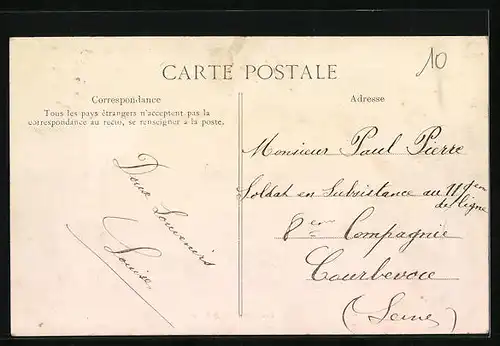 10
CARTE POSTALE
Correspondance
Tous les pays étrangers n'acceptent pas la
correspondance au recto, se renseigner à la poste.
Doux Souvenirs
Louise
Adresse
Monsieur Paul Pierre
Soldat en Subsistance au 119em
de ligne
8em Compagnie
Courbevoie
(Seine)